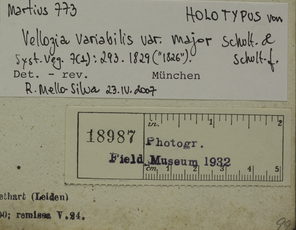 Martius 773
HOLOTYPUS von
Vellozia variabilis var. major Schult. &
Syst. Veg. 7(2): 293. 1829 ("1826"). Schult. f.
Det. - rev. München
R. Mello-Silva 23.IV.2007
in. 1 2
18987 Photogr.
Field Museum 1932
cm. 1 2 3 4 5
ethart (Leiden)
00; remisem V.24.